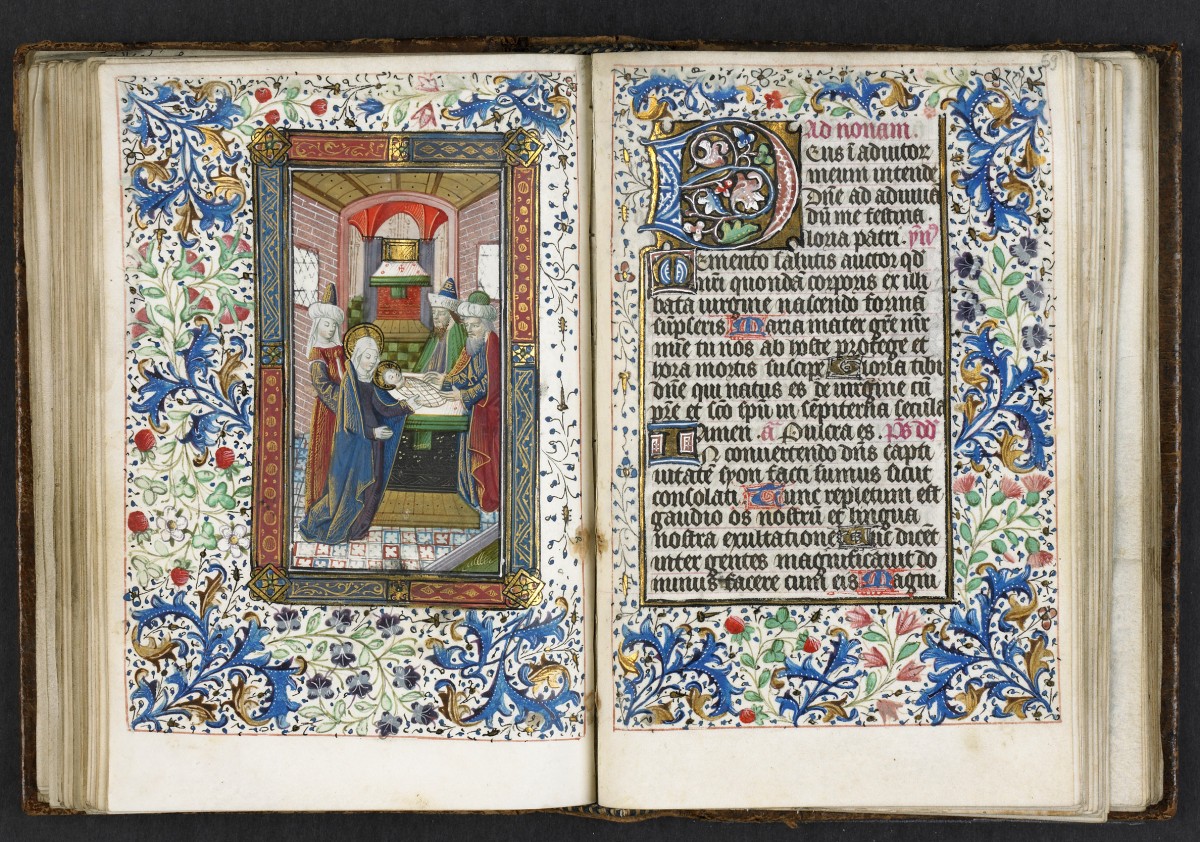 53
Ad nonam.
Deus ī adiutor
meum intende
Dn̄e ad adiuua
dū me festina.
Gloria patri. ymꝰ
Memento salutis auctor qd̓
nr̄i quondā corporis ex illi
bata uirgine nascendo forma
sūpseris Maria mater gr̄e mr̄
mīe tu nos ab hoste protege et
hora mortis suscipe Gloria tibi
dn̄e qui natus es de uirgine cū
pr̄e et sc̄o sp̄u in sempiterna secula
Amen. an̄ Pulcra es. ps dd̓
In conuertendo dn̄s capti
uitatē syon facti sumus sicut
consolati. Tunc repletum est
gaudio os nostrū et lingua
nostra exultatione Tūc dicēt
inter gentes magnificauit do
minus facere cum eis Magni